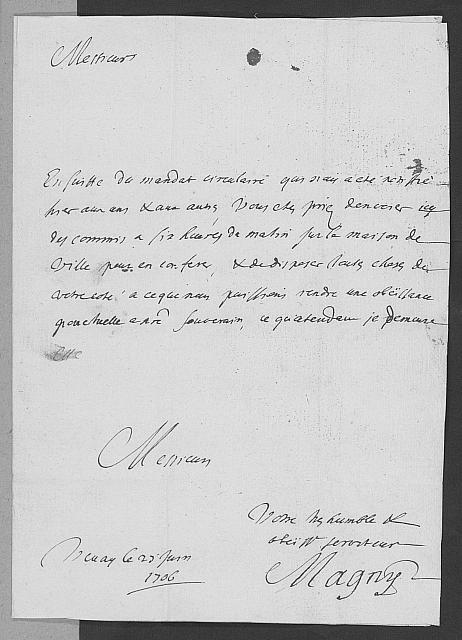 Messieurs
En suitte du mandat circulaire qui nous a été
hier aux uns & aux autres, Vous etes prié d'envoier icy
des commis a six heures du matin sur la maison de
Ville pour en conferer, & de disposer touts choses de
votre coté a ce que nous puissions rendre une obeïssance
ponctuelle a nre Souverain, ce qu'atendant je demeure
Messieurs
Votre tres humble &
obeist serviteur
Vevay le 25 Juin
1706
Magny